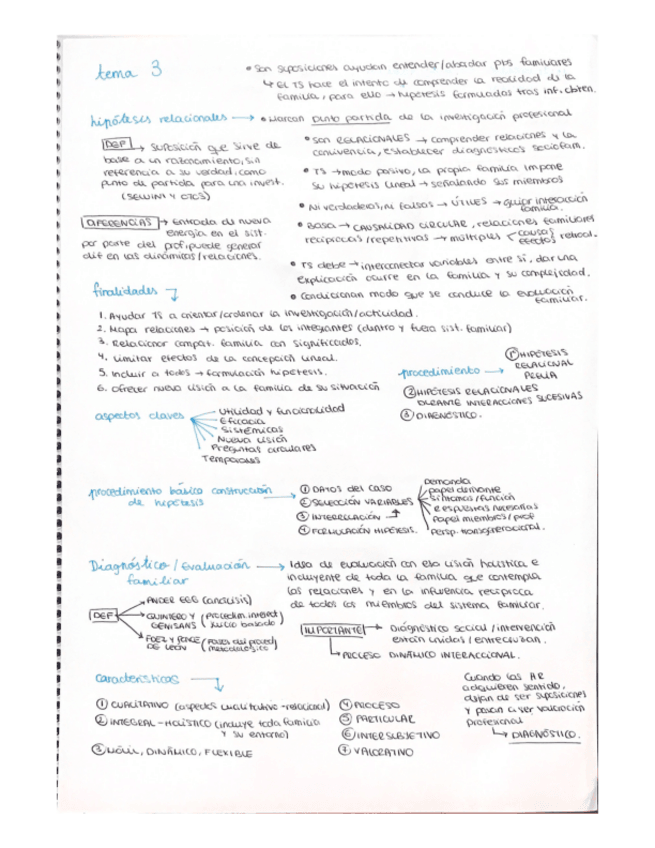 tema 3
• Son suposiciones ayudan entender/abordar pbs familiares
↳ EL TS hace el intento de comprender la realidad de la
familia, para ello → hipótesis formuladas tras inf. obten.
hipótesis relacionales → • Marcan punto partida de la investigación profesional
DEF → Suposición que sirve de
base a un razonamiento, sin
referencia a su verdad, como
punto de partida para una invest.
(SELVINI Y OTROS)
• Son RELACIONALES → comprender relaciones y la
convivencia, establecer diagnósticos sociofam.
• TS → modo pasivo, la propia familia impone
su hipótesis lineal → señalando sus miembros
• Ni verdaderas, ni falsas → ÚTILES → guiar interacción
familia.
→ Entrada de nueva
energía en el sist.
por parte del prof, puede generar
dif en las dinámicas/relaciones.
• Basa → CAUSALIDAD CIRCULAR, relaciones familiares
recíprocas/repetitivas → múltiples < causas
efectos retroal.
• TS debe → interconectar variables entre sí, dar una
explicación ocurre en la familia y su complejidad.
• Condicionan modo que se conduce la evaluación
familiar.
finalidades
1. Ayudar TS a orientar/ordenar la investigación/actividad.
2. Mapa relaciones → posición de los integrantes (dentro y fuera sist. familiar)
3. Relacionar compt. familia con significados.
4. Limitar efectos de la concepción lineal.
5. Incluir a todos → formulación hipótesis.
6. Ofrecer nueva visión a la familia de su situación
procedimiento → ① HIPÓTESIS
RELACIONAL
PREVIA
② HIPÓTESIS RELACIONALES
DURANTE INTERACCIONES SUCESIVAS
③ DIAGNÓSTICO.
aspectos claves
Utilidad y funcionalidad
Eficacia
Sistémicas
Nueva visión
Preguntas circulares
Temporales
procedimiento básico construcción
de hipótesis
→ ① DATOS DEL CASO
② SELECCIÓN VARIABLES
③ INTERRELACIÓN
④ FORMULACIÓN HIPÓTESIS.
Demanda
papel demante
síntomas/función
Respuestas necesarias
Papel miembros/prof
Persp. transgeneracional.
Diagnóstico/Evaluación
familiar
→ Idea de evaluación con esa visión holística e
incluyente de toda la familia que contempla
las relaciones y en la influencia recíproca
de todos los miembros del sistema familiar.
DEF
ANDER EGG (análisis)
QUINTERO Y
GENISANS
juicio basado
FDEZ Y PONCE
DE LEÓN
metodológico
IMPORTANTE → Diagnóstico social/intervención
están unidas/entrecruzan.
↳ PROCESO DINÁMICO INTERACCIONAL.
características
① CUALITATIVO (aspectos cualitativo-relacional)
② INTEGRAL-HOLÍSTICO (incluye toda familia
y su entorno)
③ MÓVIL, DINÁMICO, FLEXIBLE
④ PROCESO
⑤ PARTICULAR
⑥ INTERSUBJETIVO
⑦ VALORATIVO
Cuando las HR
adquieren sentido,
dejan de ser suposiciones
y pasan a ser valoración
profesional
↳ DIAGNÓSTICO.